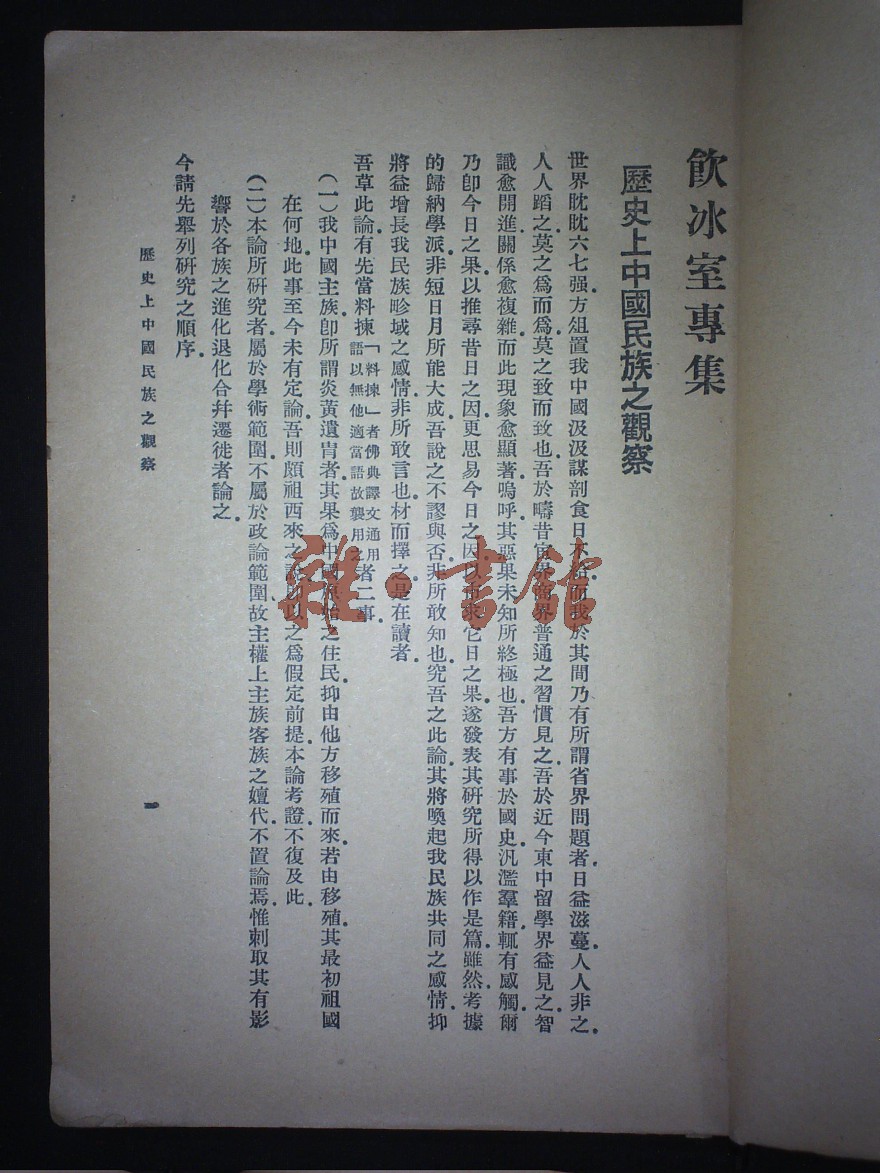 飲冰室專集
歷史上中國民族之觀察
世界眈眈六七强方俎置我中國汲汲謀剖食日不給而我於其間乃有所謂省界問題者日益滋蔓人人非之
人人蹈之莫之爲而爲莫之致而致也吾於疇昔宦界商界普通之習慣見之吾於近今東中留學界益見之智
識愈開進關係愈複雜而此現象愈顯著嗚呼其惡果未知所終極也吾方有事於國史汎濫羣籍輒有感觸爾
乃卽今日之果以推尋昔日之因更思易今日之因以市求它日之果遂發表其研究所得以作是篇雖然考據
的歸納學派非短日月所能大成吾說之不謬與否非所敢知也究吾之此論其將喚起我民族共同之感情抑
將益增長我民族畛域之感情非所敢言也材而擇之是在讀者
吾草此論有先當料揀「料揀」者佛典譯文通用語以無他適當語故襲用之者二事
(一)我中國主族卽所謂炎黃遺胄者其果爲中國原始之住民抑由他方移殖而來若由移殖其最初祖國
在何地此事至今未有定論吾則頗祖西來之說卽以之爲假定前提本論考證不復及此
(二)本論所研究者屬於學術範圍不屬於政論範圍故主權上主族客族之嬗代不置論焉惟刺取其有影
響於各族之進化退化合幷遷徙者論之
今請先舉列研究之順序
歷史上中國民族之觀察
一
雜·書館